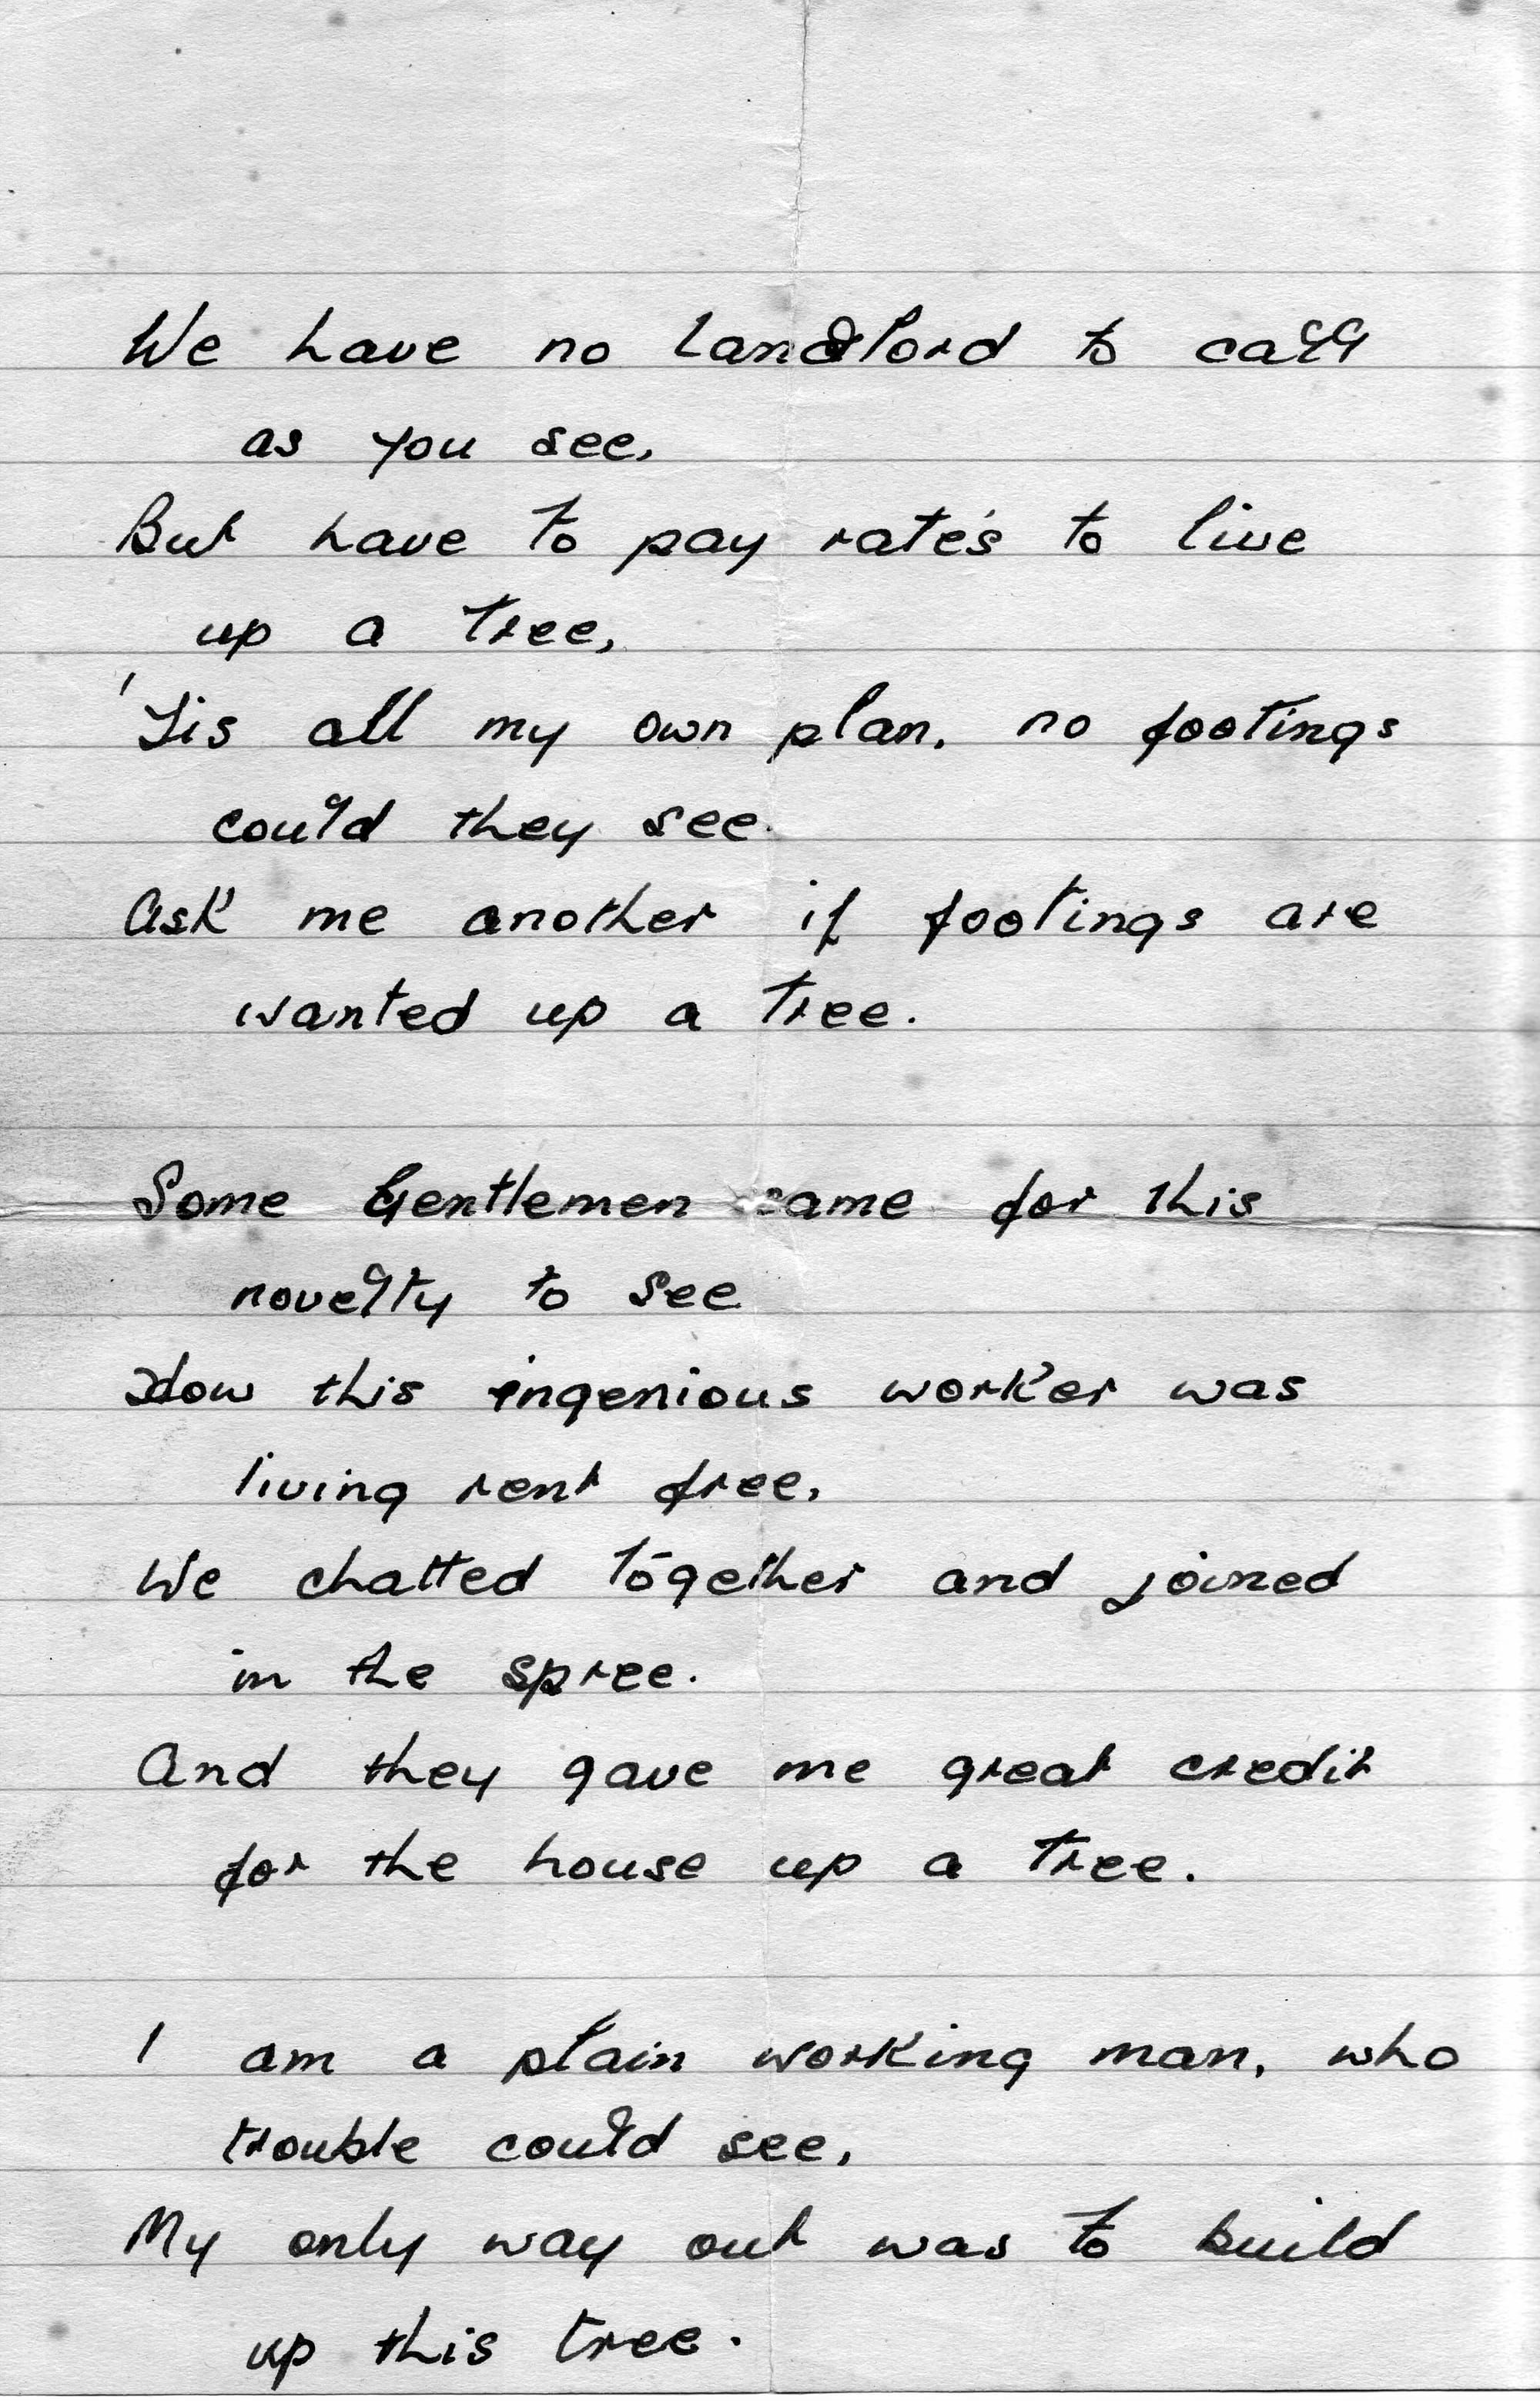 We have no landlord to call
as you see,
But have to pay rate's to live
up a tree,
'Tis all my own plan, no footings
could they see.
Ask me another if footings are
wanted up a tree.
Some Gentlemen came for this
novelty to see
How this ingenious worker was
living rent free,
We chatted together and joined
in the spree.
And they gave me great credit
for the house up a tree.
I am a plain working man, who
trouble could see,
My only way out was to build
up this tree.